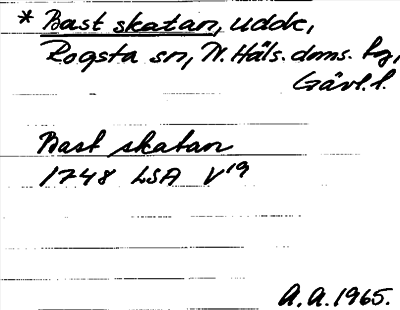 * Bast skatan, udde,
Rogsta sn, N. Häls. doms. hg,
Gävl. l.
Bast skatan
1748 LSA V¹⁹
A.A. 1965.